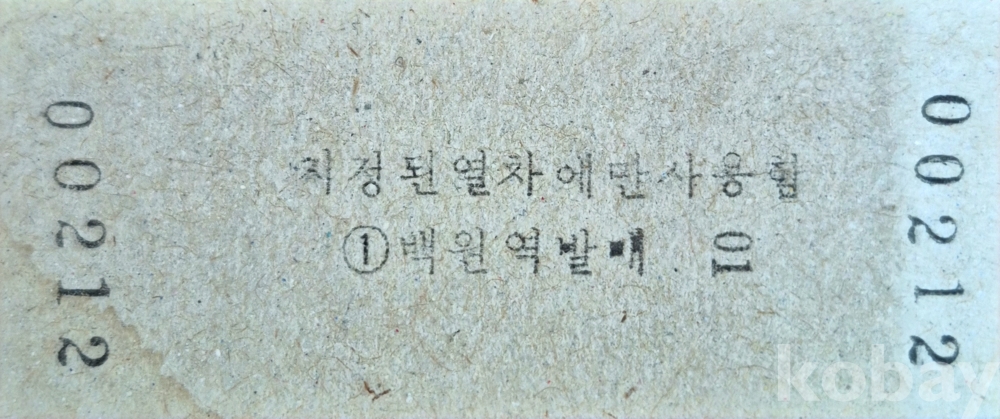 00212
지정된열차에만사용함
①백원역발매 01
00212
kobay